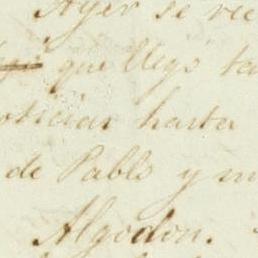 Ayer se rec
que llegó ta
oticias hasta
de Pablo y m
Algodon.